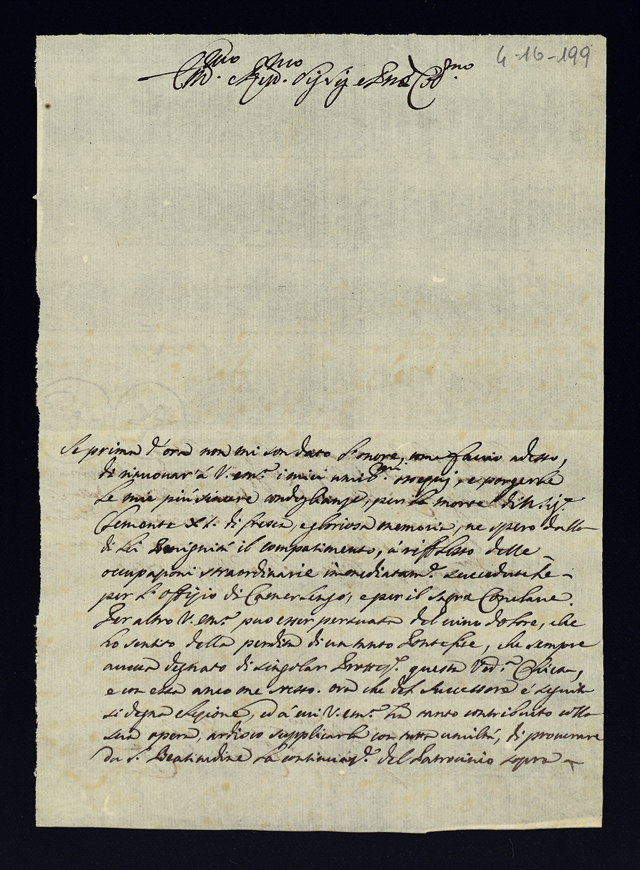 4-16-199
Em.mo Rev.mo Sig.r Sig.r e Pne Col.mo
Se prima d'ora non mi son dato l'onore, come faccio adesso,
di rinouar' á V. Em.za i miei umil.mi ossequj, e porgerle
le mie più sincere condoglianze, per la morte di N. Sig.
Clemente XI. di fresca, e gloriosa memoria, ne spero dalla
di Lei Benignità il compatimento, á riflesso delle
occupazioni straordinarie immediatam.e succedutehe
per l'Offizio di Camerlengo, e per il Sagro Conclave.
Per altro V. Em.za può esser persuasa del vivo dolore, che
ho sentito della perdita di un tanto Pontefice, che sempre
aveva degnato di singolar Protez.e questa Chiesa,
e con essa anco me stesso. Ora che del Successore è seguita
sì degna elezione, ed á cui V. Em.za ha tanto contribuito colla
sua opera, ardisco supplicarla con tutta umiltà, di procurare
da S. Beatitudine la continuaz.e del Patrocinio sopra